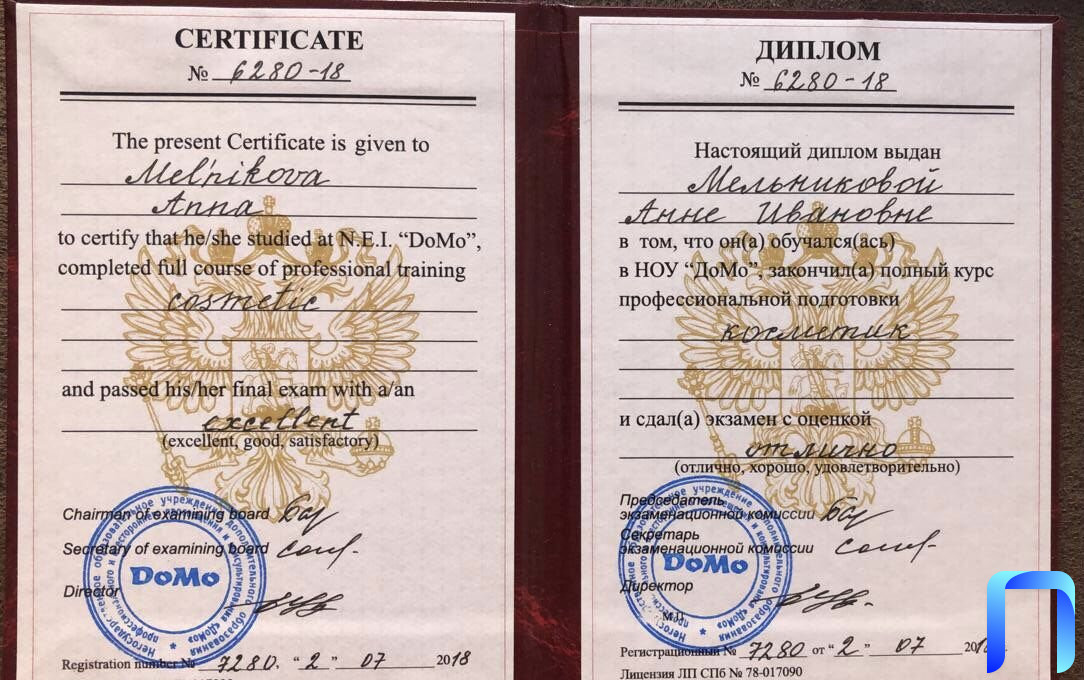 CERTIFICATE
№ 6280-18
The present Certificate is given to
Mel'nikova
Anna
to certify that he/she studied at N.E.I. “DoMo”,
completed full course of professional training
cosmetic
and passed his/her final exam with a/an
excellent
(excellent, good, satisfactory)
Chairman of examining board
Secretary of examining board
Director
DoMo
Registration number № 7280. “2” 07 2018
ДИПЛОМ
№ 6280-18
Настоящий диплом выдан
Мельниковой
Анне Ивановне
в том, что он(а) обучался(ась)
в НОУ “ДоМо”, закончил(а) полный курс
профессиональной подготовки
косметик
и сдал(а) экзамен с оценкой
отлично
(отлично, хорошо, удовлетворительно)
Председатель
экзаменационной комиссии
Секретарь
экзаменационной комиссии
Директор
DoMo
М.П.
Регистрационный № 7280 от “2” 07
Лицензия ЛП СПб № 78-017090